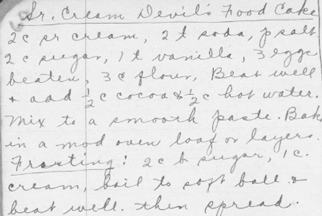 Sr. Cream Devil's Food Cake
2 c sr cream, 2 t soda, p salt
2 c sugar, 1 t vanilla, 3 eggs
beaten, 3 c flour, Beat well
& add ½ c cocoa & ½ c hot water.
Mix to a smooth paste. Bake
in a mod oven loaf or layers.
Frosting: 2 c b sugar, 1 c.
cream, boil to soft ball &
beat well. then spread.